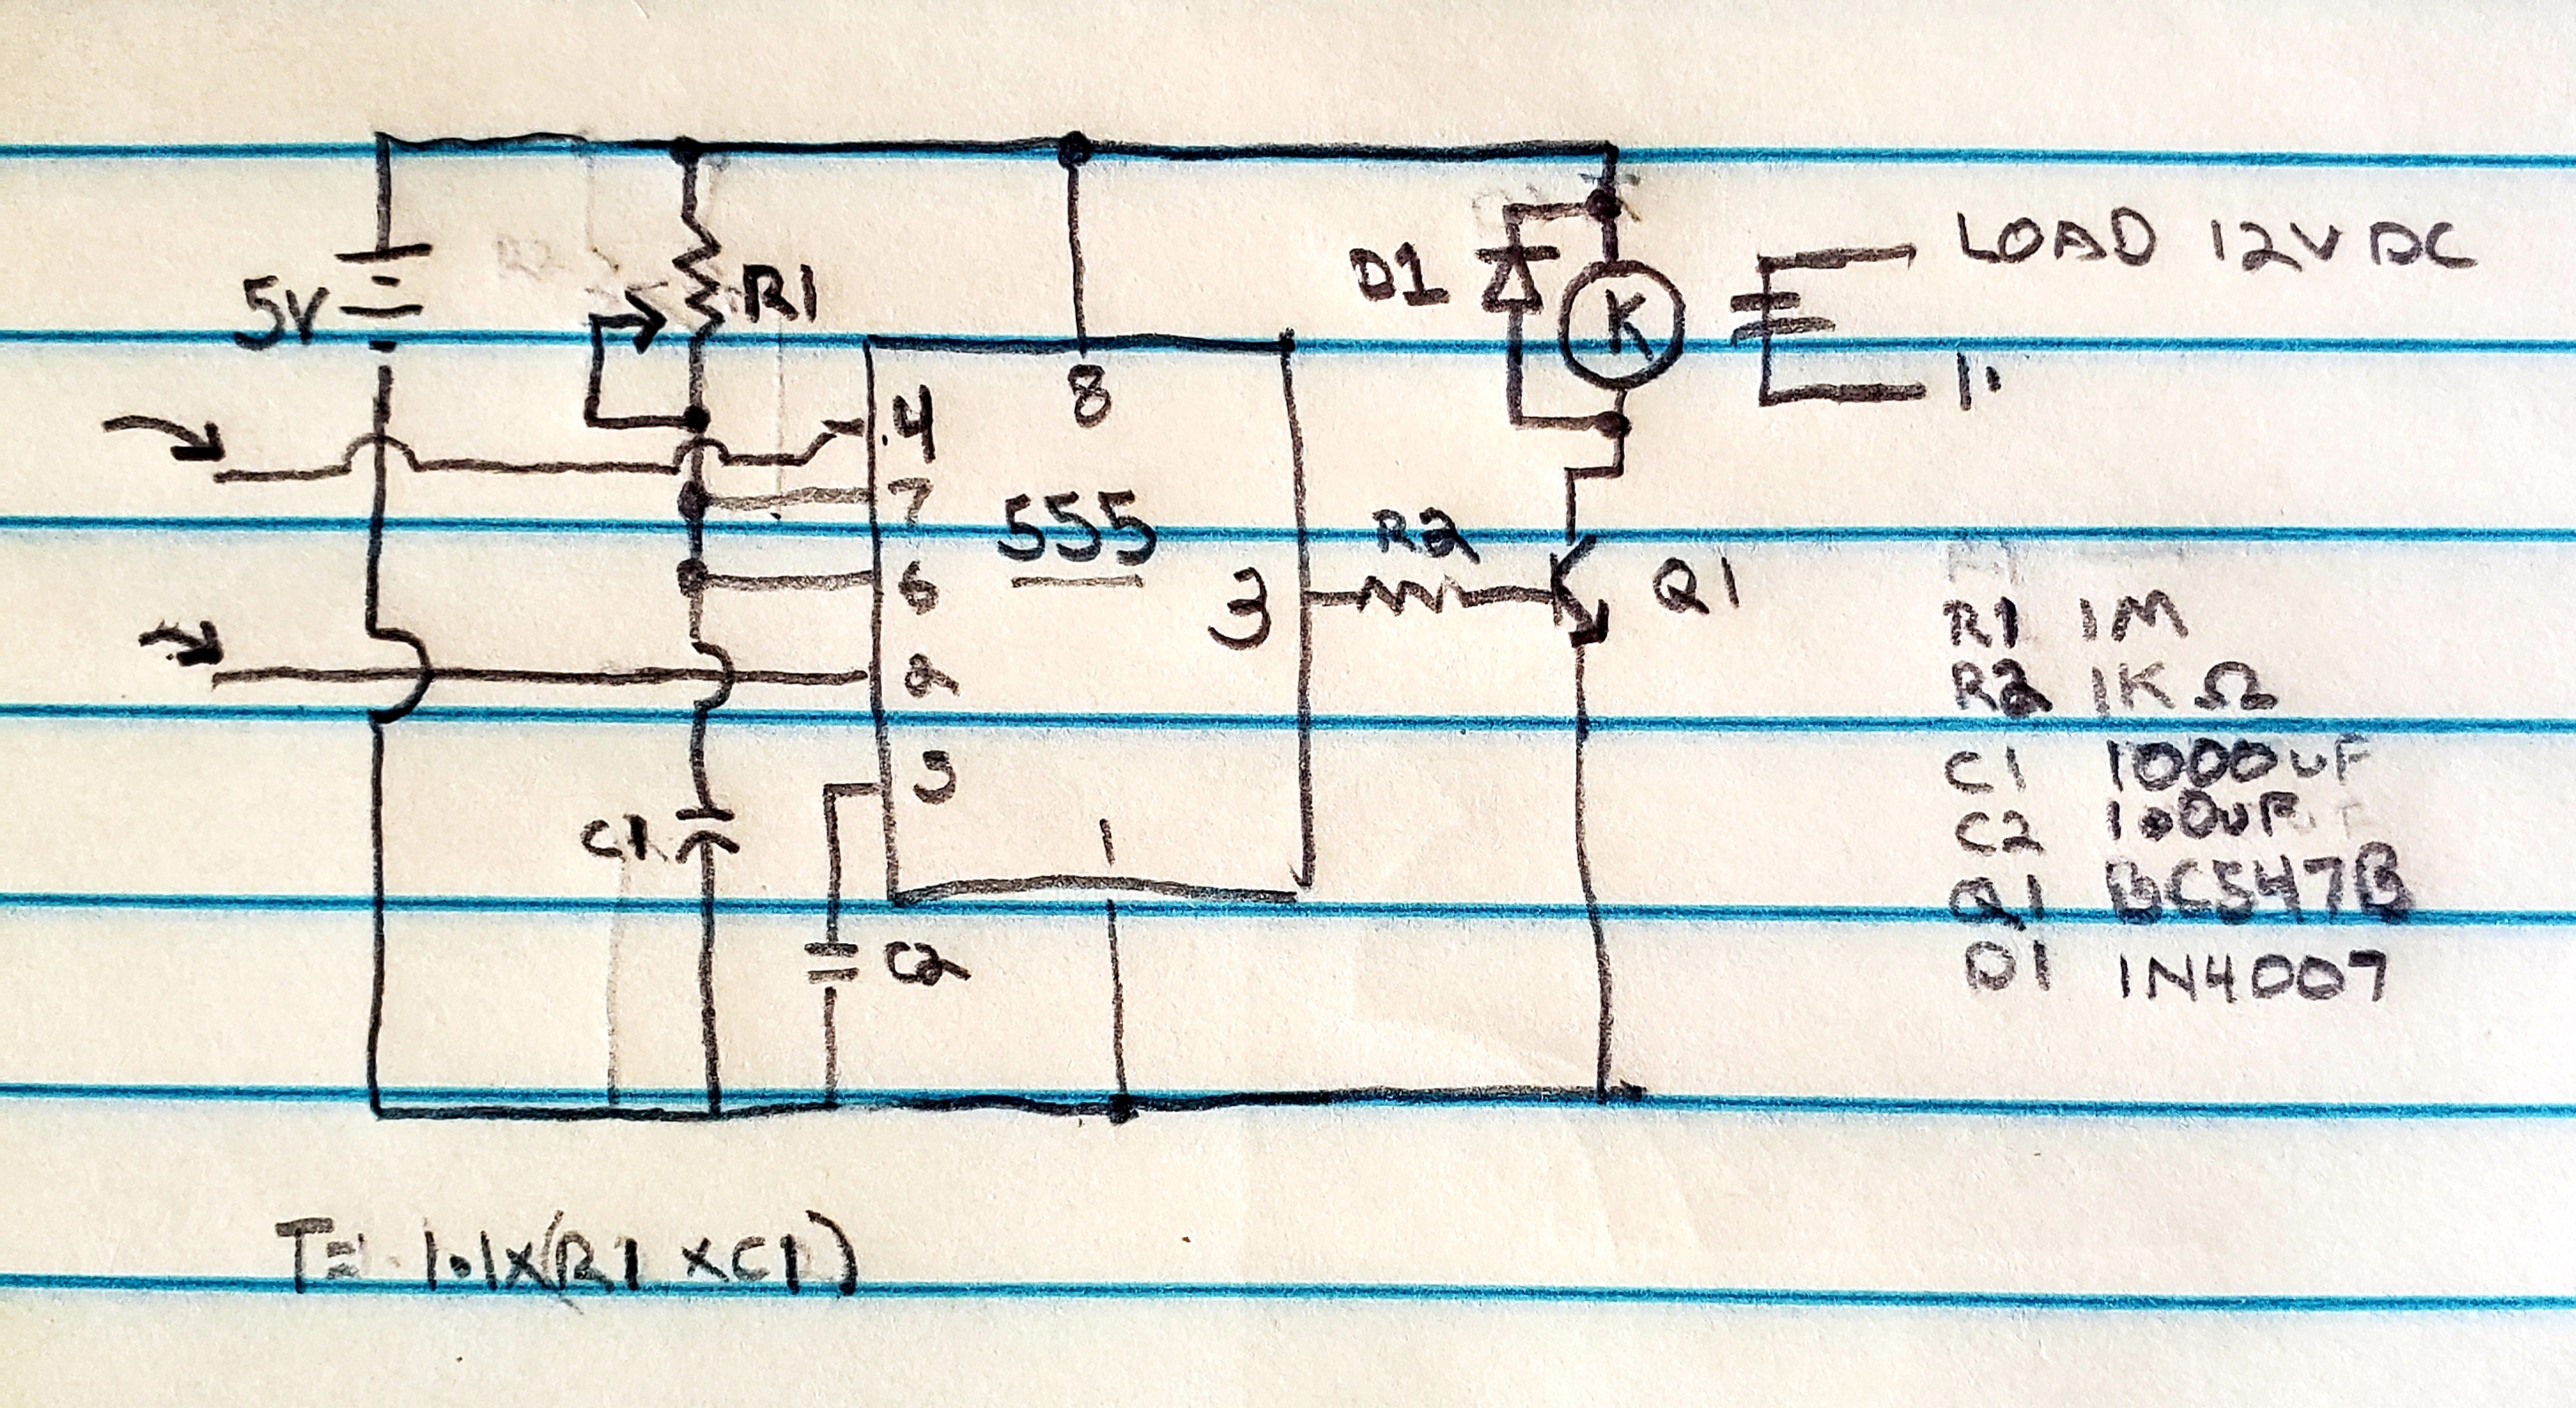 5V
R1
D1
K
LOAD 12V DC
4
8
7
555
6
3
R2
Q1
2
5
1
C1
C2
R1 1M
R2 1K Ω
C1 1000uF
C2 100uF
Q1 BC547B
D1 1N4007
T= 1.1x(R1 xC1)